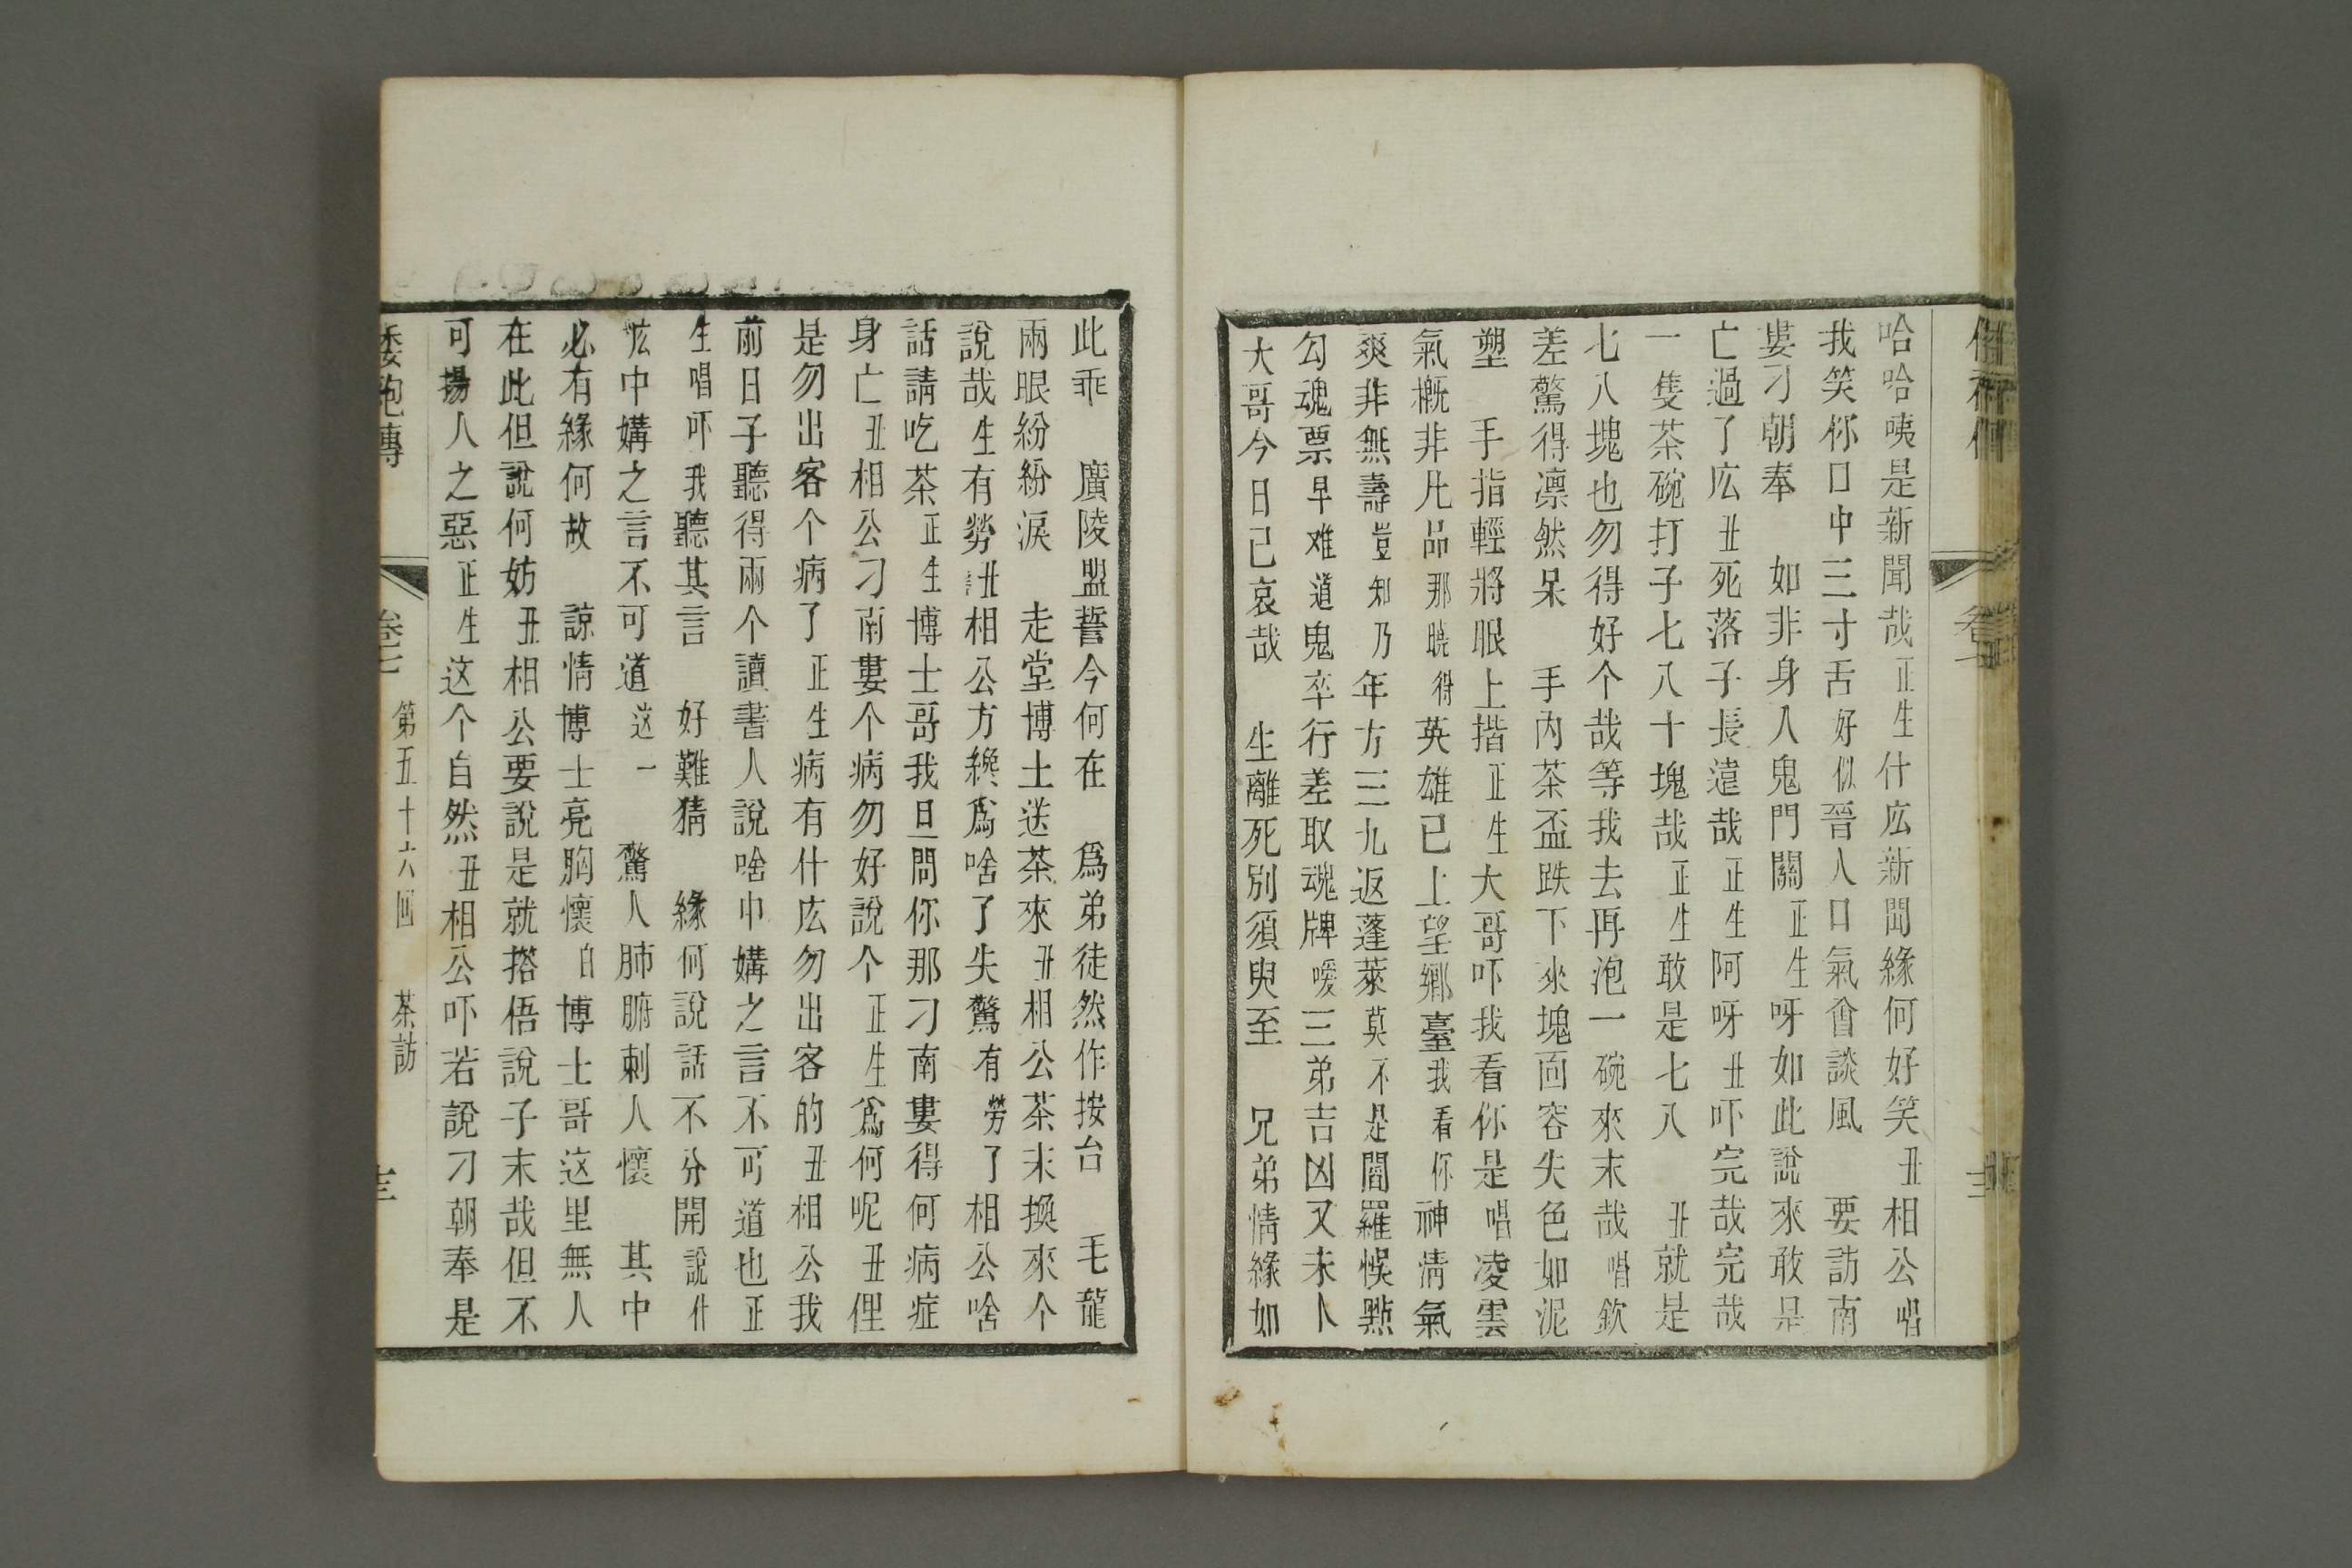 哈哈咦是新聞哉正生什庅新聞緣何好笑丑相公唱
我笑你口中三寸舌好似晉人口氣會談風　要訪南
婁刁朝奉　如非身入鬼門關正生呀如此說來敢是
亡過了庅丑死落子長遠哉正生阿呀丑吓完哉完哉
一隻茶碗打子七八十塊哉正生敢是七八　丑就是
七八塊也勿得好个哉等我去再泡一碗來末哉唱欽
差驚得凛然呆　手內茶盃跌下來塊面容失色如泥
塑　手指輕將眼上揩正生大哥吓我看你是唱凌雲
氣概非凡品那曉得英雄已上望鄉臺我看你神清氣
爽非無壽豈知乃年方三九返蓬萊莫不是閻羅悞點
勾魂票早难道鬼卒行差取魂牌噯三弟吉凶又未卜
大哥今日已哀哉　生離死別須臾至　兄弟情緣如
此乖　廣陵盟誓今何在　爲弟徒然作按台　毛龍
兩眼紛紛淚　走堂博士送茶來丑相公茶末換來个
說哉生有勞丑相公方纔爲啥了失驚有勞了相公啥
話請吃茶正生博士哥我且問你那刁南婁得何病症
身亡丑相公刁南婁个病勿好說个正生爲何呢丑俚
是勿出客个病了正生病有什庅勿出客的丑相公我
前日子聽得兩个讀書人說啥巾媾之言不可道也正
生唱吓我聽其言　好難猜　緣何說話不分開說什
庅中媾之言不可道這一　驚人肺腑刺人懷　其中
必有緣何故　諒情博士亮胸懷白博士哥这里無人
在此但說何妨丑相公要說是就搭俉說子末哉但不
可揚人之惡正生这个自然丑相公吓若說刁朝奉是
倭袍傳　卷七　第五十六回　茶訪